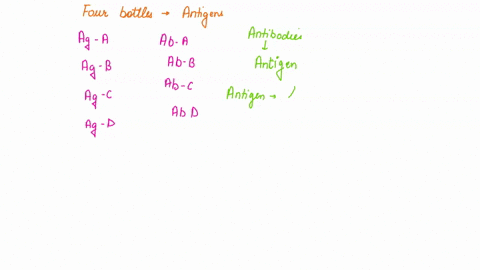 Four bottles → Antigens
Ag-A
Ag-B
Ag-C
Ag-D
Ab-A
Ab-B
Ab-C
Ab D
Antibodies
↓
Antigen
Antigen →